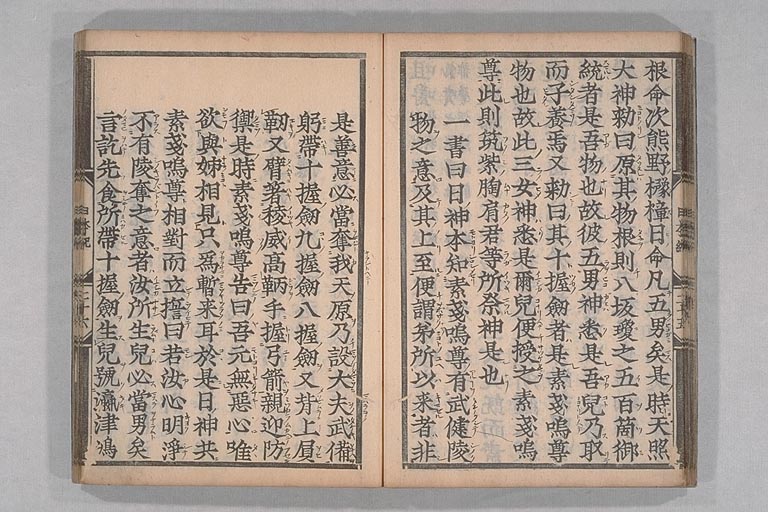 根命次熊野櫲樟日命凡五男矣是時天照
大神勅曰原其物根則八坂瓊之五百箇御
統者是吾物也故彼五男神悉是吾兒乃取
而子養焉又勅曰其十握劒者是素戔嗚尊
物也故此三女神悉是爾兒便授之素戔嗚
尊此則筑紫胸肩君等所祭神是也
一書曰日神本知素戔嗚尊有武健陵
物之意及其上至便謂弟所以來者非
是善意必當奪我天原乃設大夫武備
躬帶十握劒九握劒八握劒又背上屓
靭又臂著稜威高鞆手握弓箭親迎防
禦是時素戔嗚尊告曰吾元無惡心唯
欲與姊相見只爲暫來耳於是日神共
素戔嗚尊相對而立誓曰若汝心明淨
不有陵奪之意者汝所生兒必當男矣
言訖先食所帶十握劒生兒號瀛津嶋